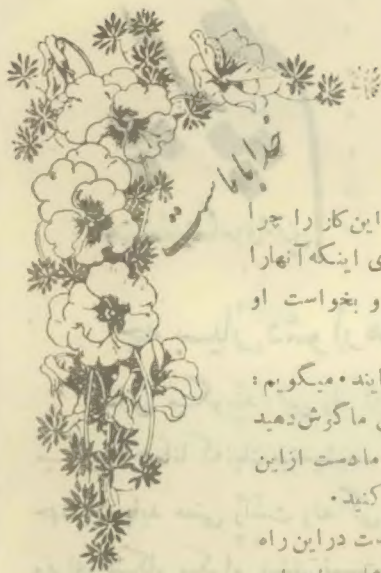 خدا با ماست
این کار را چرا
ی اینکه آنها را
و بخواست او
ایند. میگویم:
ما گوش دهید
مادست از این
کنید.
ست در این راه